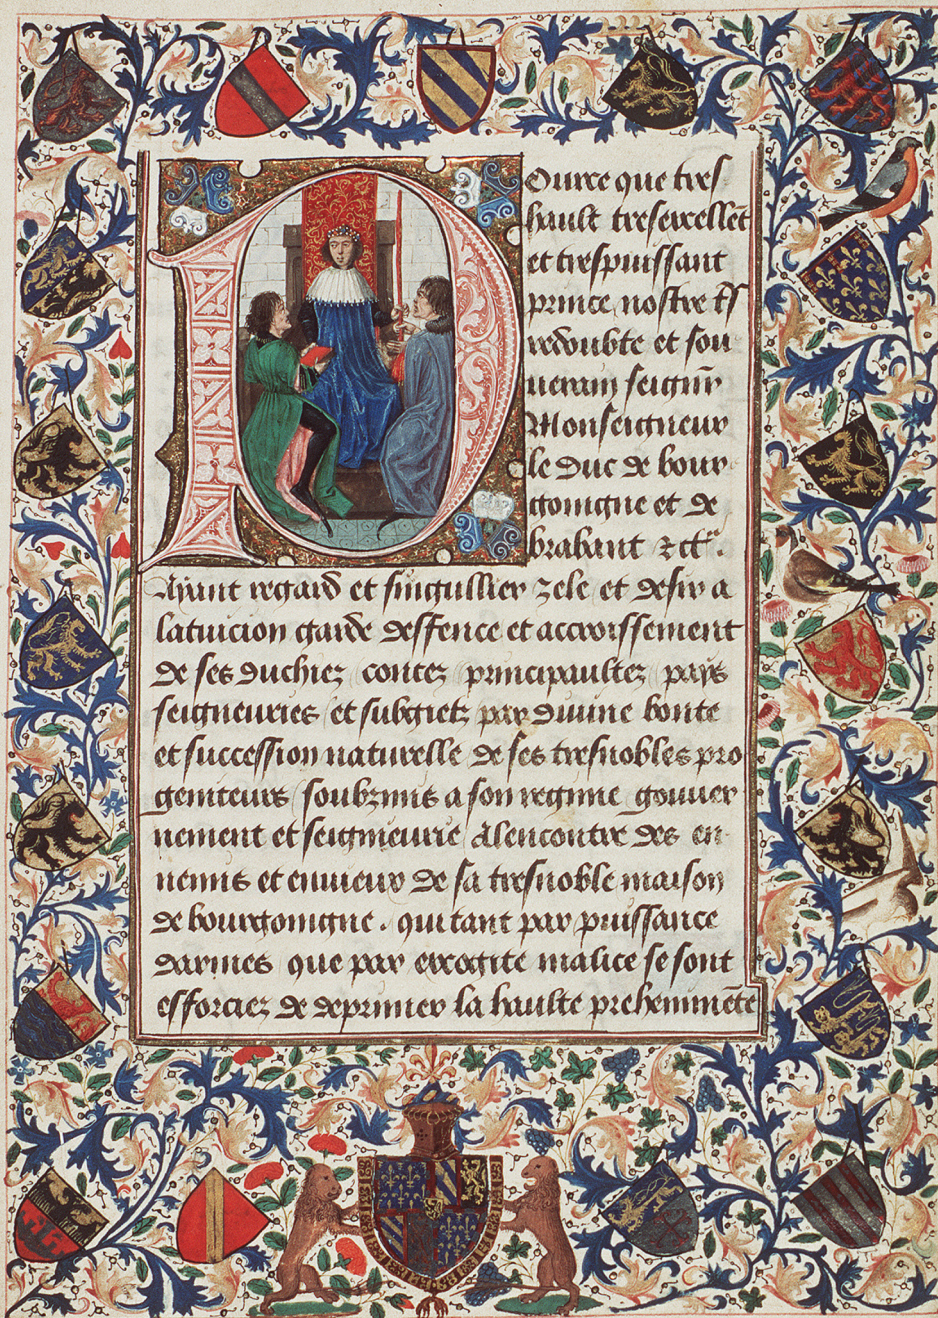 Pource que tres
hault tresexcellēt
et trespuissant
prince, nostre tˢ
redoubte et sou
uerain seignr̄
Monseigneur
le Duc de bour
goingne et de
brabant &ct̄.
Ayant regard et singullier zele et desir a
latuicion garde deffence et accroissement
de ses duchiez contez principaultez pays
seigneuries et subgietz par diuine bonte
et succession naturelle de ses tresnobles pro
geniteurs soubzmis a son regime gouuer
nement et seignieurie Alencontre des en-
nemis et enuieux de sa tresnoble maison
de bourgoingne. qui tant par puissance
darmes que par excogite malice se sont
efforciez de deprimer la haulte prehemine̅ce